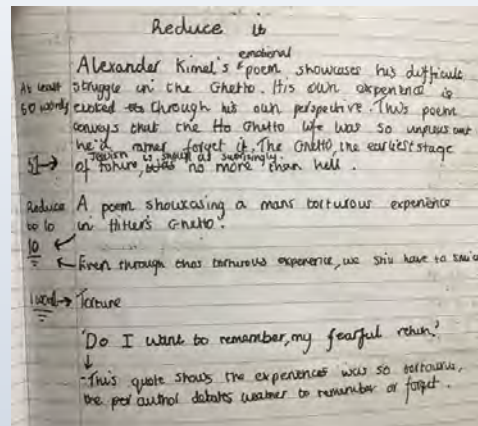 Reduce it
emotional
Alexander Kimel's poem showcases his difficult
At least struggle in the Ghetto. His own experience is
50 words evoked through his own perspective. This poem
conveys that the Ghetto life was so
he'd rather forget it. The Ghetto, the earliest stage
Jewish is shown as surprisingly
51 → of torture, no more than hell.
Reduce A poem showcasing a mans torturous experience
to 10 in Hitler's Ghetto.
10
Even through that torturous experience, we still have to
1 word → Torture
'Do I want to remember, my fearful return?'
- This quote shows the experiences was so torturous,
the author debates weather to remember or forget.